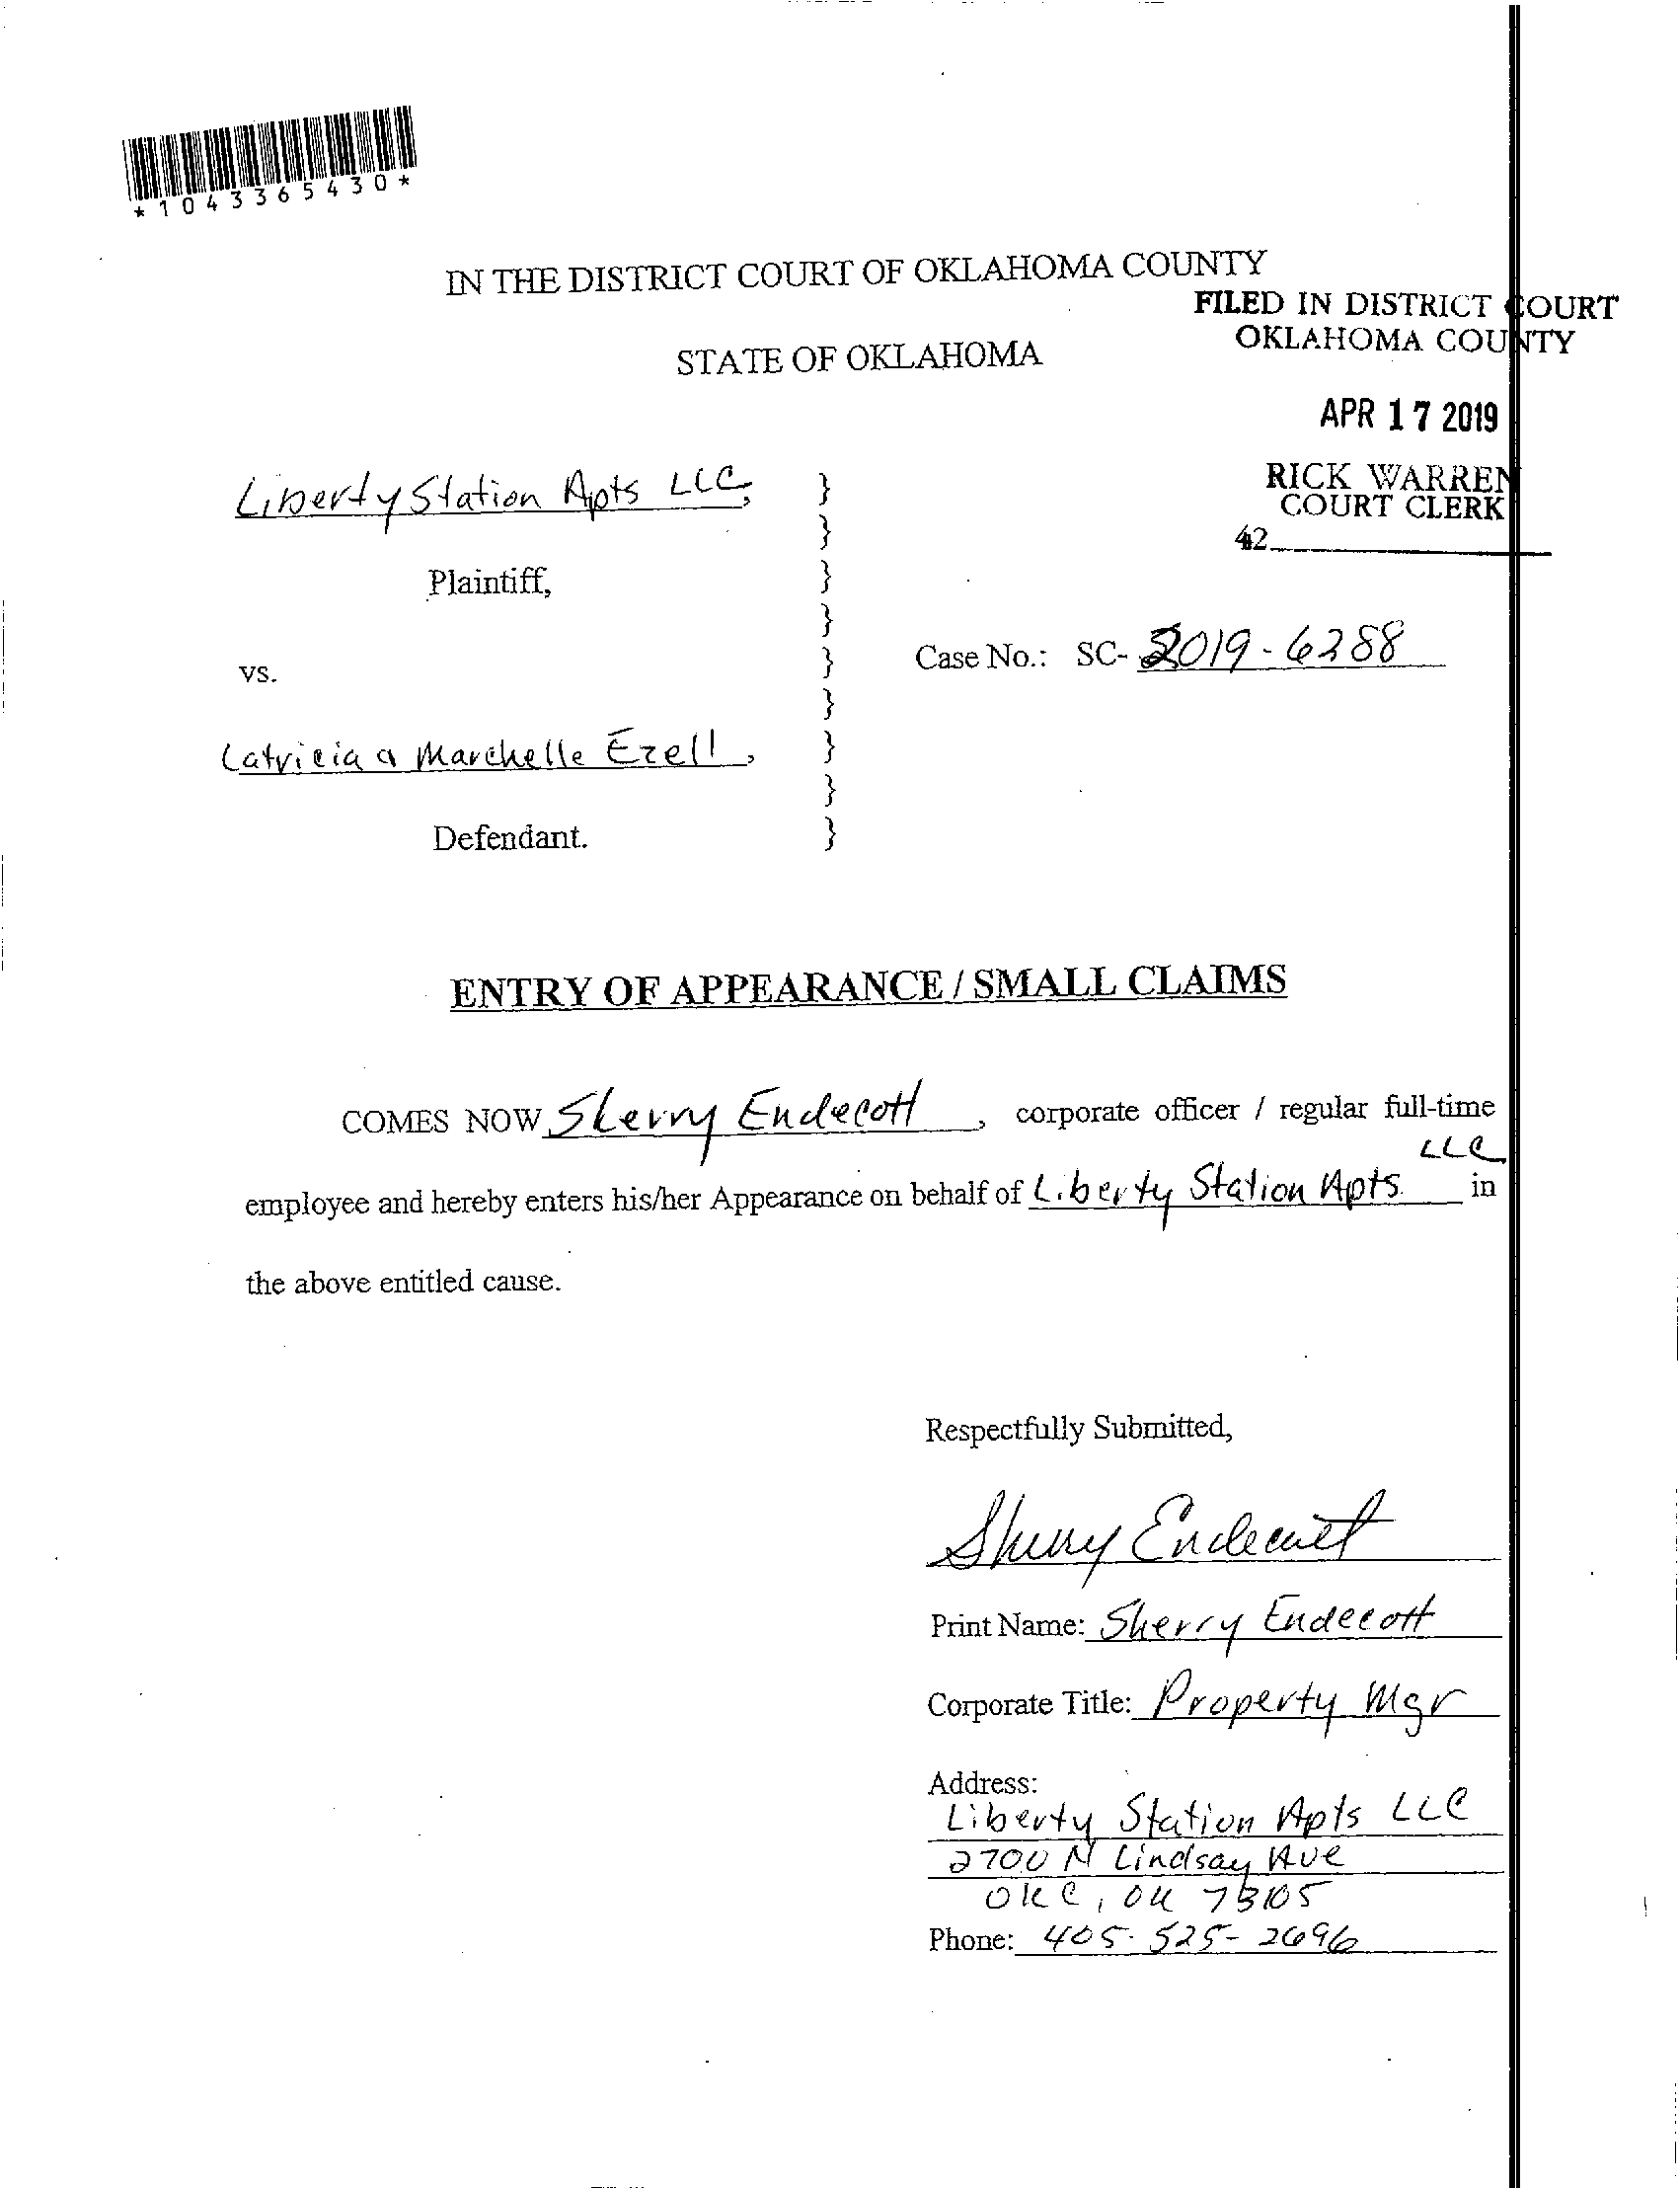 *1043365430*
IN THE DISTRICT COURT OF OKLAHOMA COUNTY
FILED IN DISTRICT COURT
OKLAHOMA COUNTY
STATE OF OKLAHOMA
APR 17 2019
RICK WARREN
COURT CLERK
42
Liberty Station Apts LLC,
Plaintiff,
vs.
Case No.: SC- 2019-6288
Latricia a Marchelle Ezell,
Defendant.
}
}
}
}
}
}
}
}
}
ENTRY OF APPEARANCE / SMALL CLAIMS
COMES NOW Sherry Endecott, corporate officer / regular full-time
LLC
employee and hereby enters his/her Appearance on behalf of Liberty Station Apts. in
the above entitled cause.
Respectfully Submitted,
Sherry Endecott
Print Name: Sherry Endecott
Corporate Title: Property Mgr
Address:
Liberty Station Apts LLC
2700 N Lindsay Ave
OKC, OK 73105
Phone: 405-525-2696